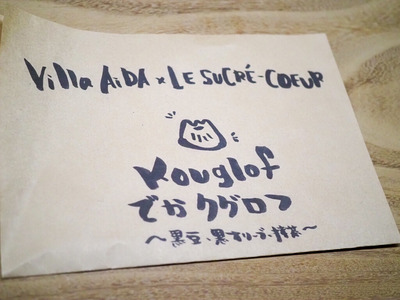 Villa AiDA × LE SUCRÉ-COEUR
Kouglof
でか クグロフ
〜黒豆、黒オリーブ、抹茶〜